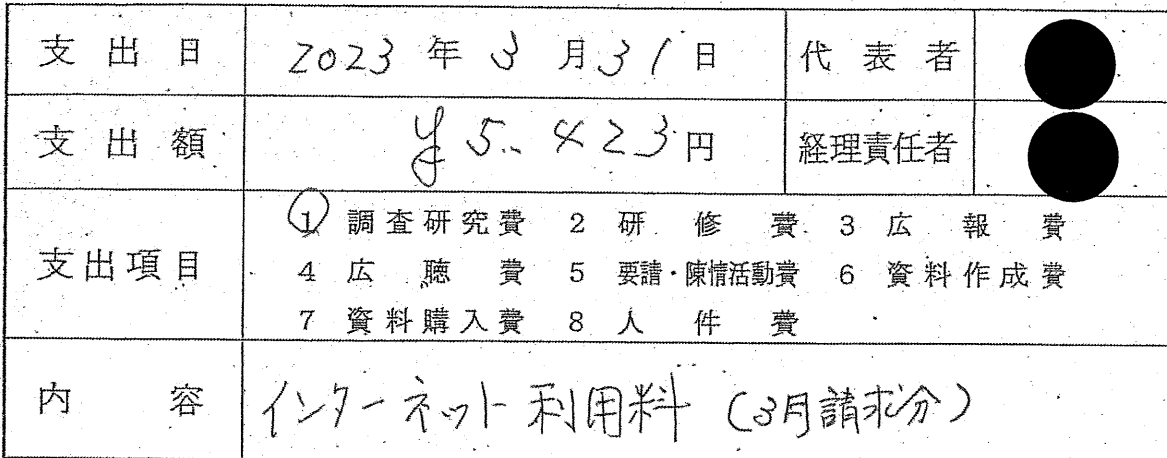 支出日 2023年3月31日 代表者
支出額 ¥5.423円 経理責任者
支出項目 1 調査研究費 2 研修費 3 広報費
4 広聴費 5 要請・陳情活動費 6 資料作成費
7 資料購入費 8 人件費
内容 インターネット利用料（3月請求分）